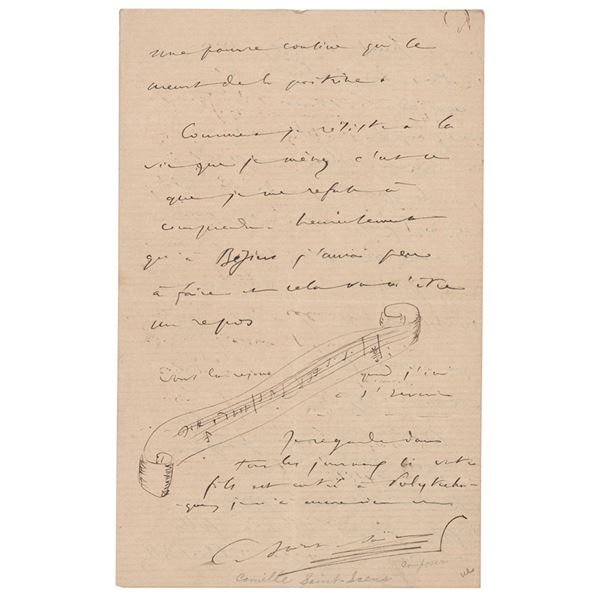 une pauvre cousine qui se
meurt de la poitrine.
Comment je résiste à la
vie que je mène c'est ce
que je me refuse à
comprendre. heureusement
qu'à Béziers j'aurai peu
à faire et cela va m'être
un repos
quand j'irai
à St
Je regarde dans
tous les journaux si votre
fils est entré à Polytechn-
que, je n'ai encore rien vu
C. Saint-Saëns
Camille Saint-Saens
composer